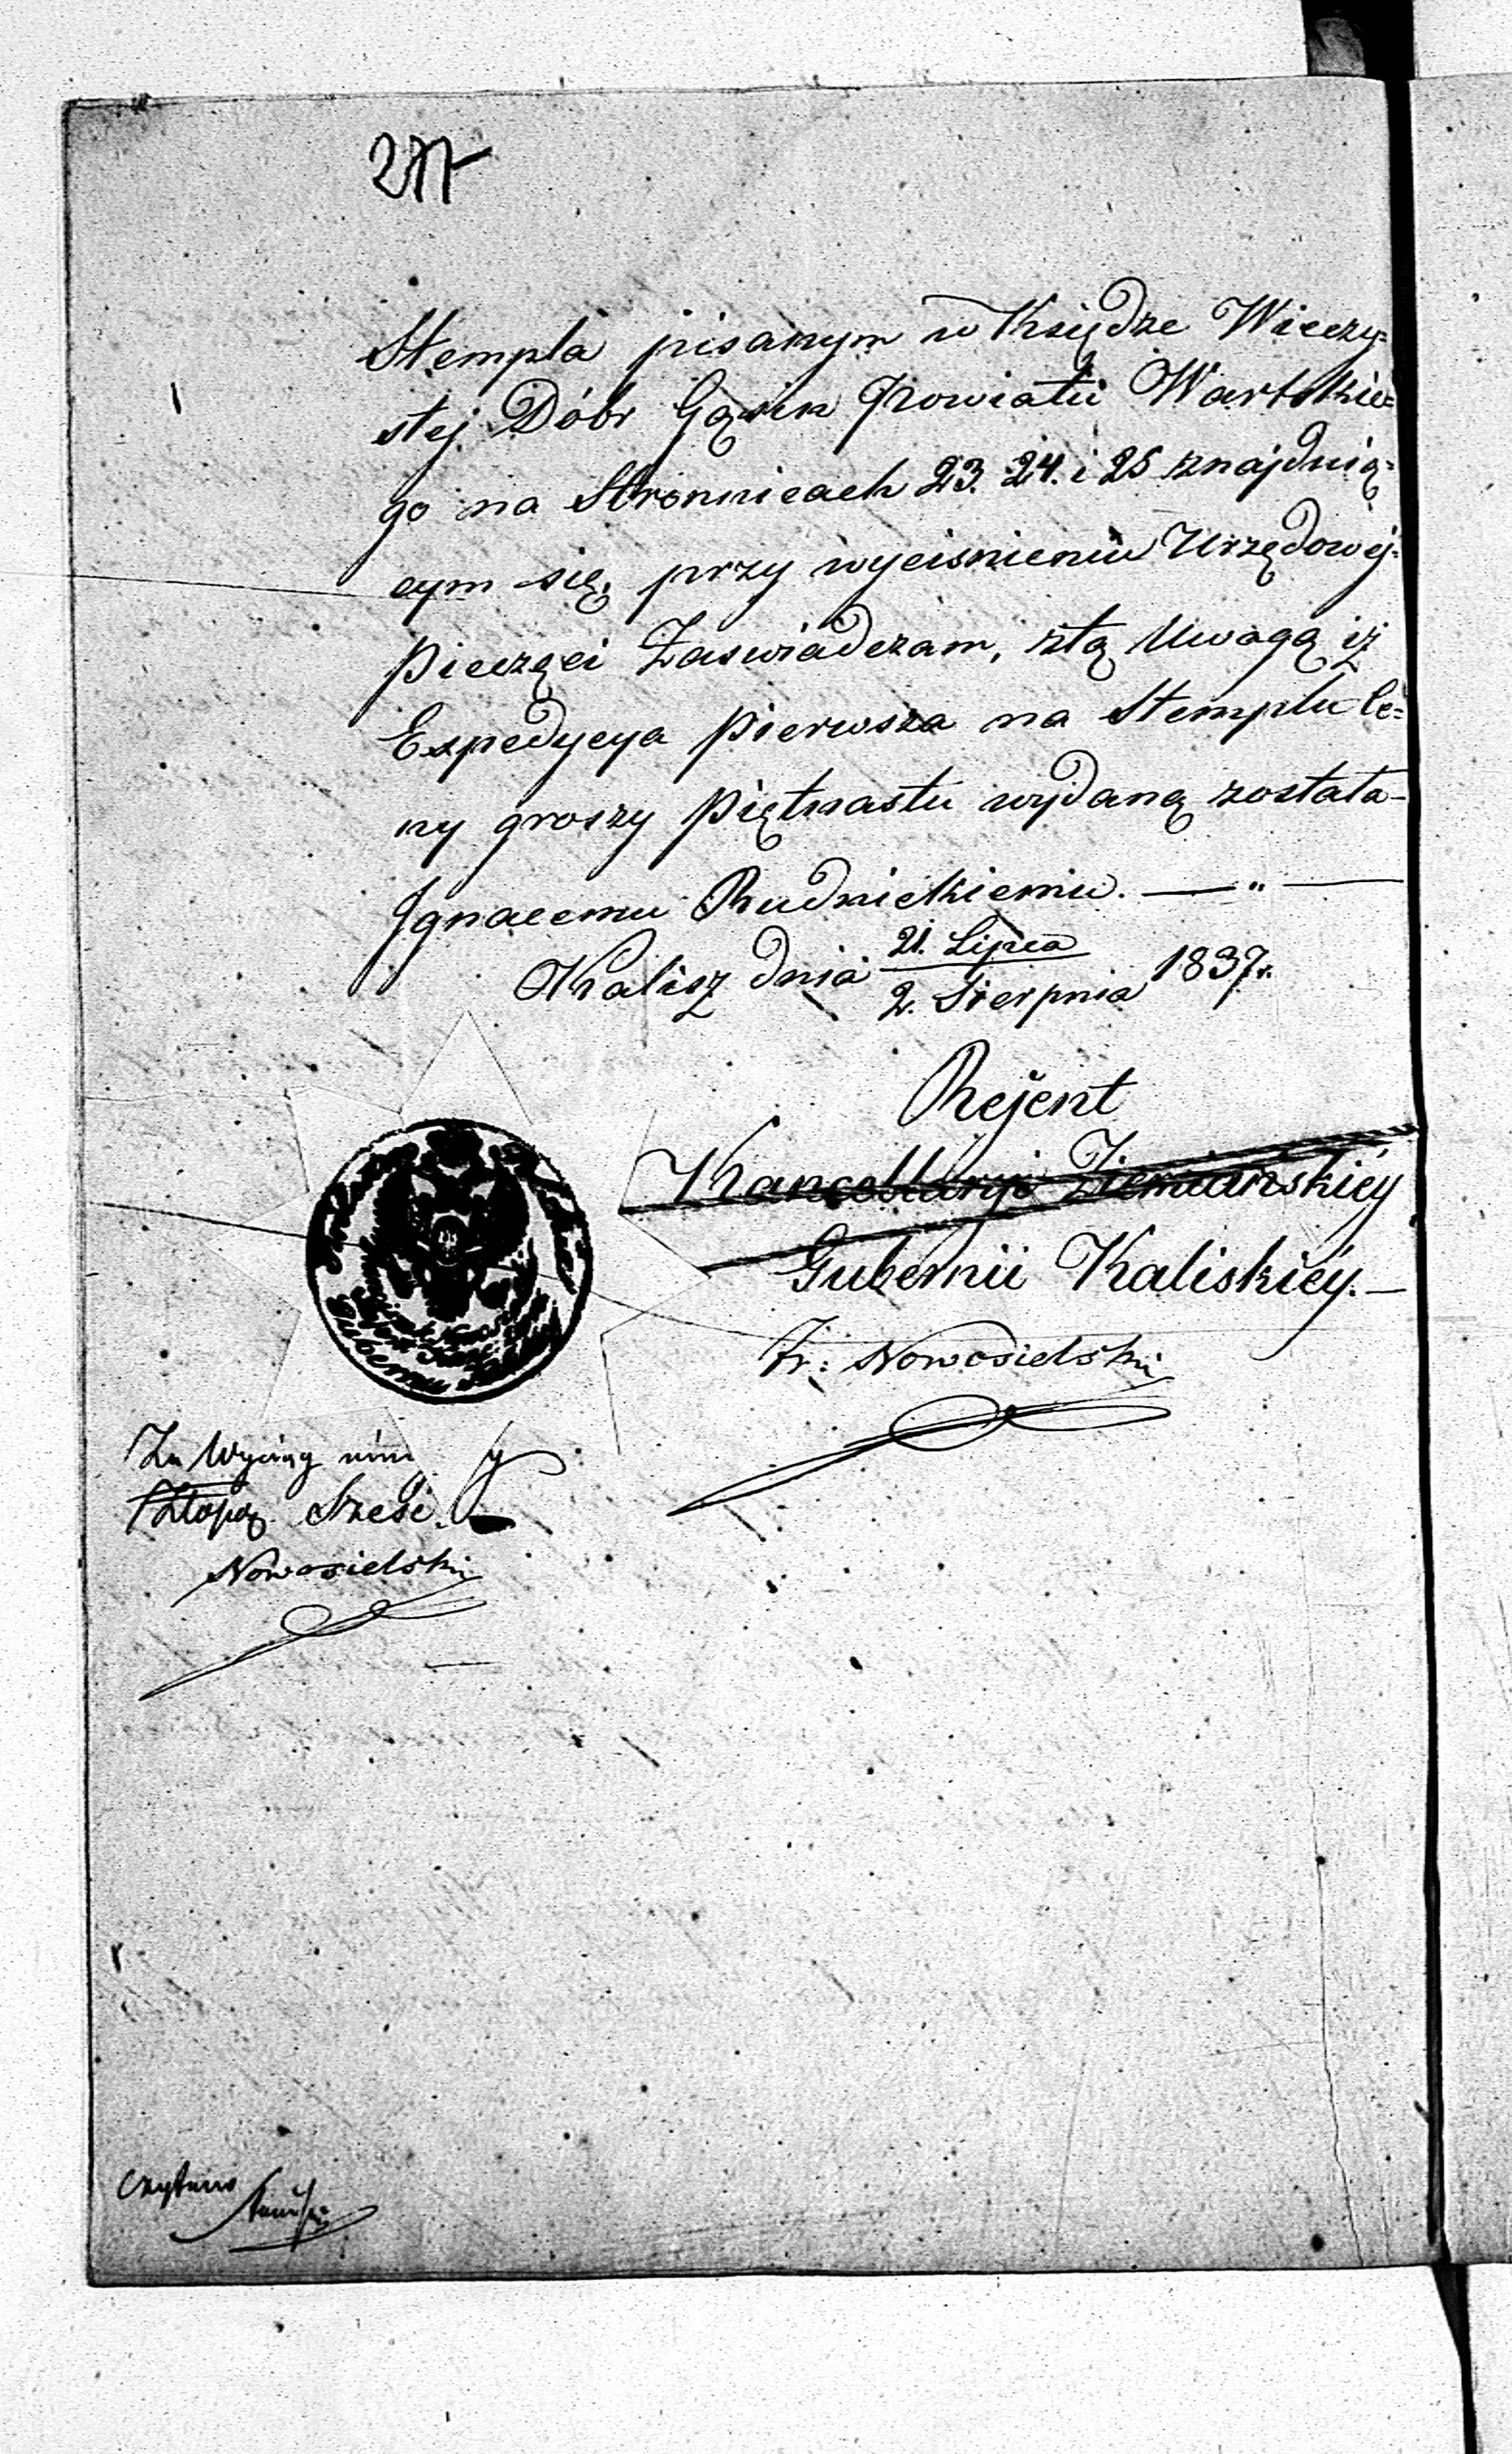 Stempla pisanym w Księdze Wieczy=
stej Dóbr Gąsin Powiatu Wartskie=
go na Stronnicach 23. 24. i 25 znajdują=
cym się, przy wyciśnieniu Urzędowej=
Pieczęci Zaswiadczam, z tą Uwagą iż
Expedycya pierwsza na Stemplu Ce=
ny groszy piętnastu wydaną została-
Ignacemu Rudnickiemu. — " —
Kalisz dnia 21. Lipca / 2. Sierpnia 1837 r.
Rejent
Kancellaryi Ziemiańskiéy
Gubernii Kaliskiéy. —
Fr: Nowosielski
Za Wyciąg
Złopo. Sześć.
Nowosielski
Czytano